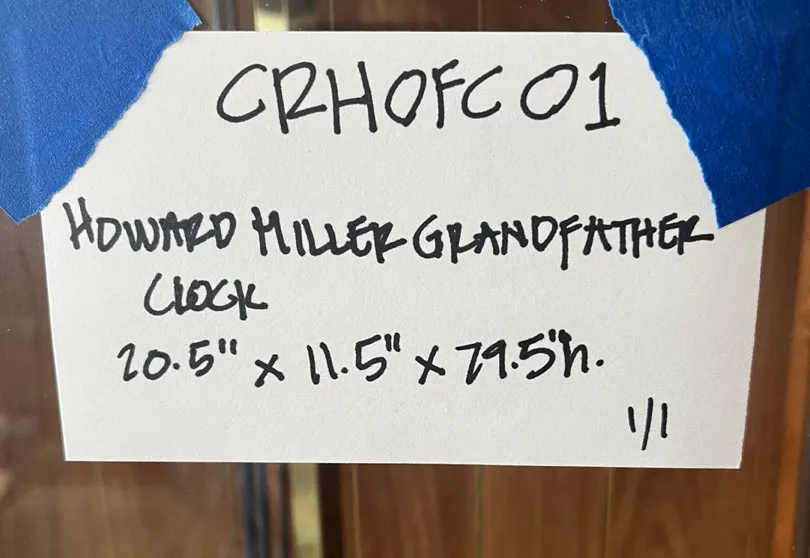 CRHOFC01
HOWARD MILLER GRANDFATHER
CLOCK
20.5" x 11.5" x 79.5"h.
1/1